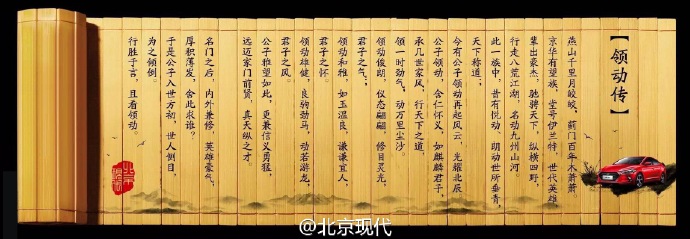 【领动传】
燕山千里月皎皎，蓟门百年木萧萧。
京华有望族，堂号伊兰特，世代英雄
辈出豪杰，驰骋天下，纵横四野，
行走八荒江湖，名动九州山河。
此一族中，昔有悦动、朗动世所垂青，
天下称道；
今有公子领动再起风云，光耀北辰
公子领动，含仁怀义，如麒麟君子，
承几世家风，行天下之道，
领一时劲气，动万里尘沙。
领动俊朗，仪态翩翩，修目炅光，
君子之气；
领动和雅，如玉温良，谦谦宜人，
君子之怀。
领动雄健，良驹劲马，动若游龙，
君子之风。
公子雅望如此，更兼信义勇猛，
远迈家门前贤，真天纵之才。
名门之后，内外兼修，英雄豪气，
厚积薄发，舍此求谁？
于是公子入世方初，世人侧目，
为之倾倒。
行胜于言，且看领动。
@北京现代